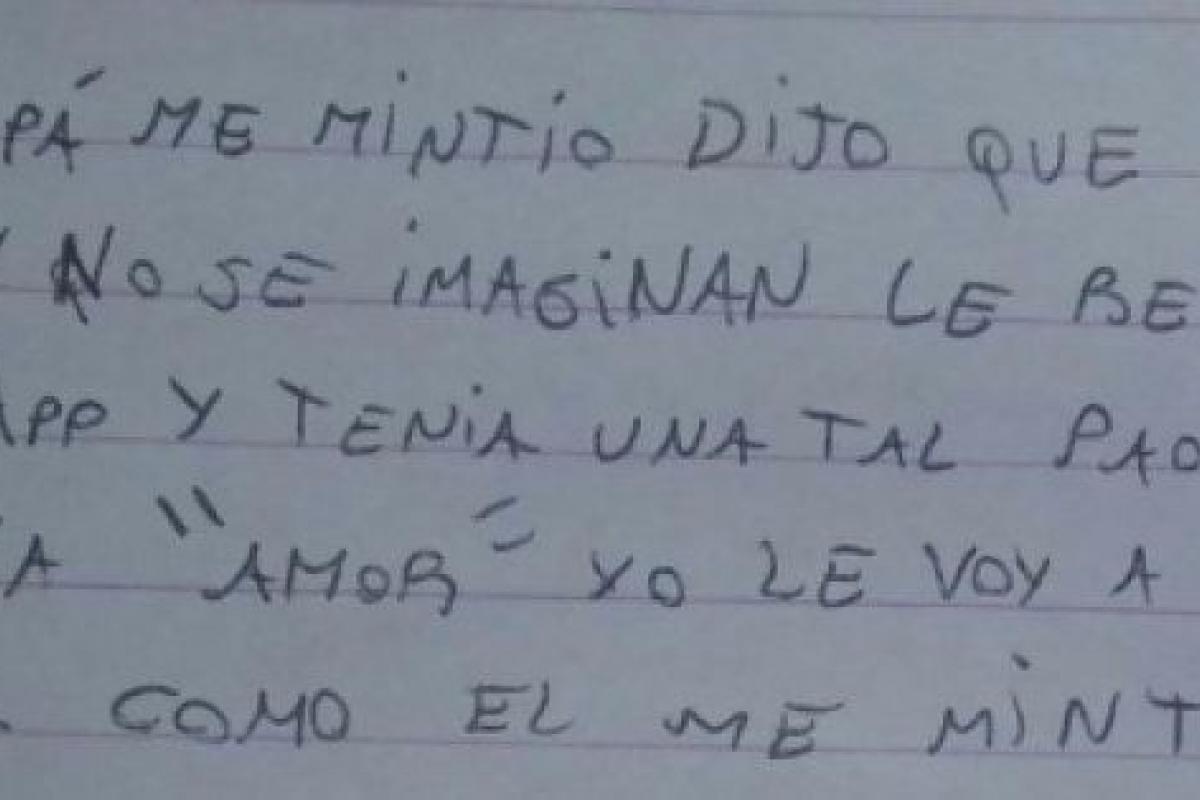 PÁ ME MINTIO DIJO QUE
NO SE IMAGINAN LE BE
APP Y TENIA UNA TAL PAO
A "AMOR" YO LE VOY A
COMO EL ME MINT